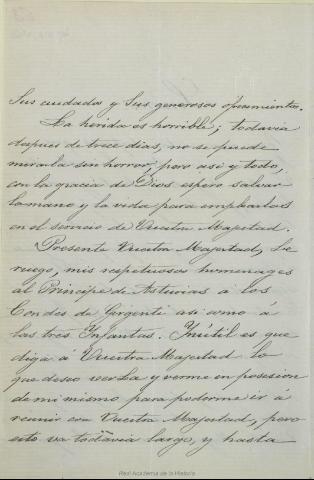 Sus cuidados y Sus generosos ofrecimientos.
La herida es horrible; todavia
despues de trece dias, no se puede
mirarla sin horror, pero asi y todo,
con la gracia de Dios espero salvar
la mano y la vida para emplearlas
en el servicio de Vuestra Majestad.
Presente Vuestra Majestad, Le
ruego, mis respetuosos homenages
al Principe de Asturias á los
Condes de Girgenti asi como á
las tres Infantas. Inútil es que
diga á Vuestra Majestad lo
que deseo verLa y verme en posesion
de mi mismo para poderme ir á
reunir con Vuestra Majestad, pero
esto va todavia largo, y hasta
Real Academia de la Historia